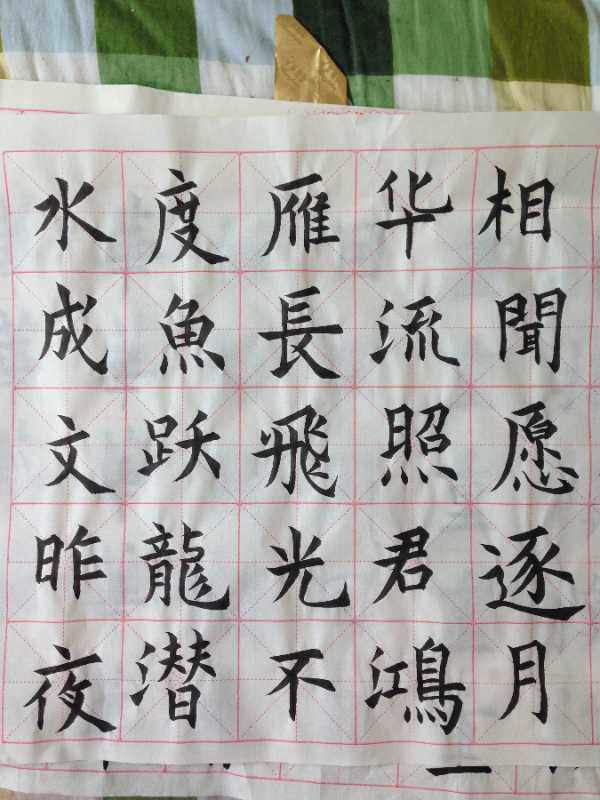 相聞愿逐月
华流照君鴻
雁長飛光不
度魚跃龍潜
水成文昨夜